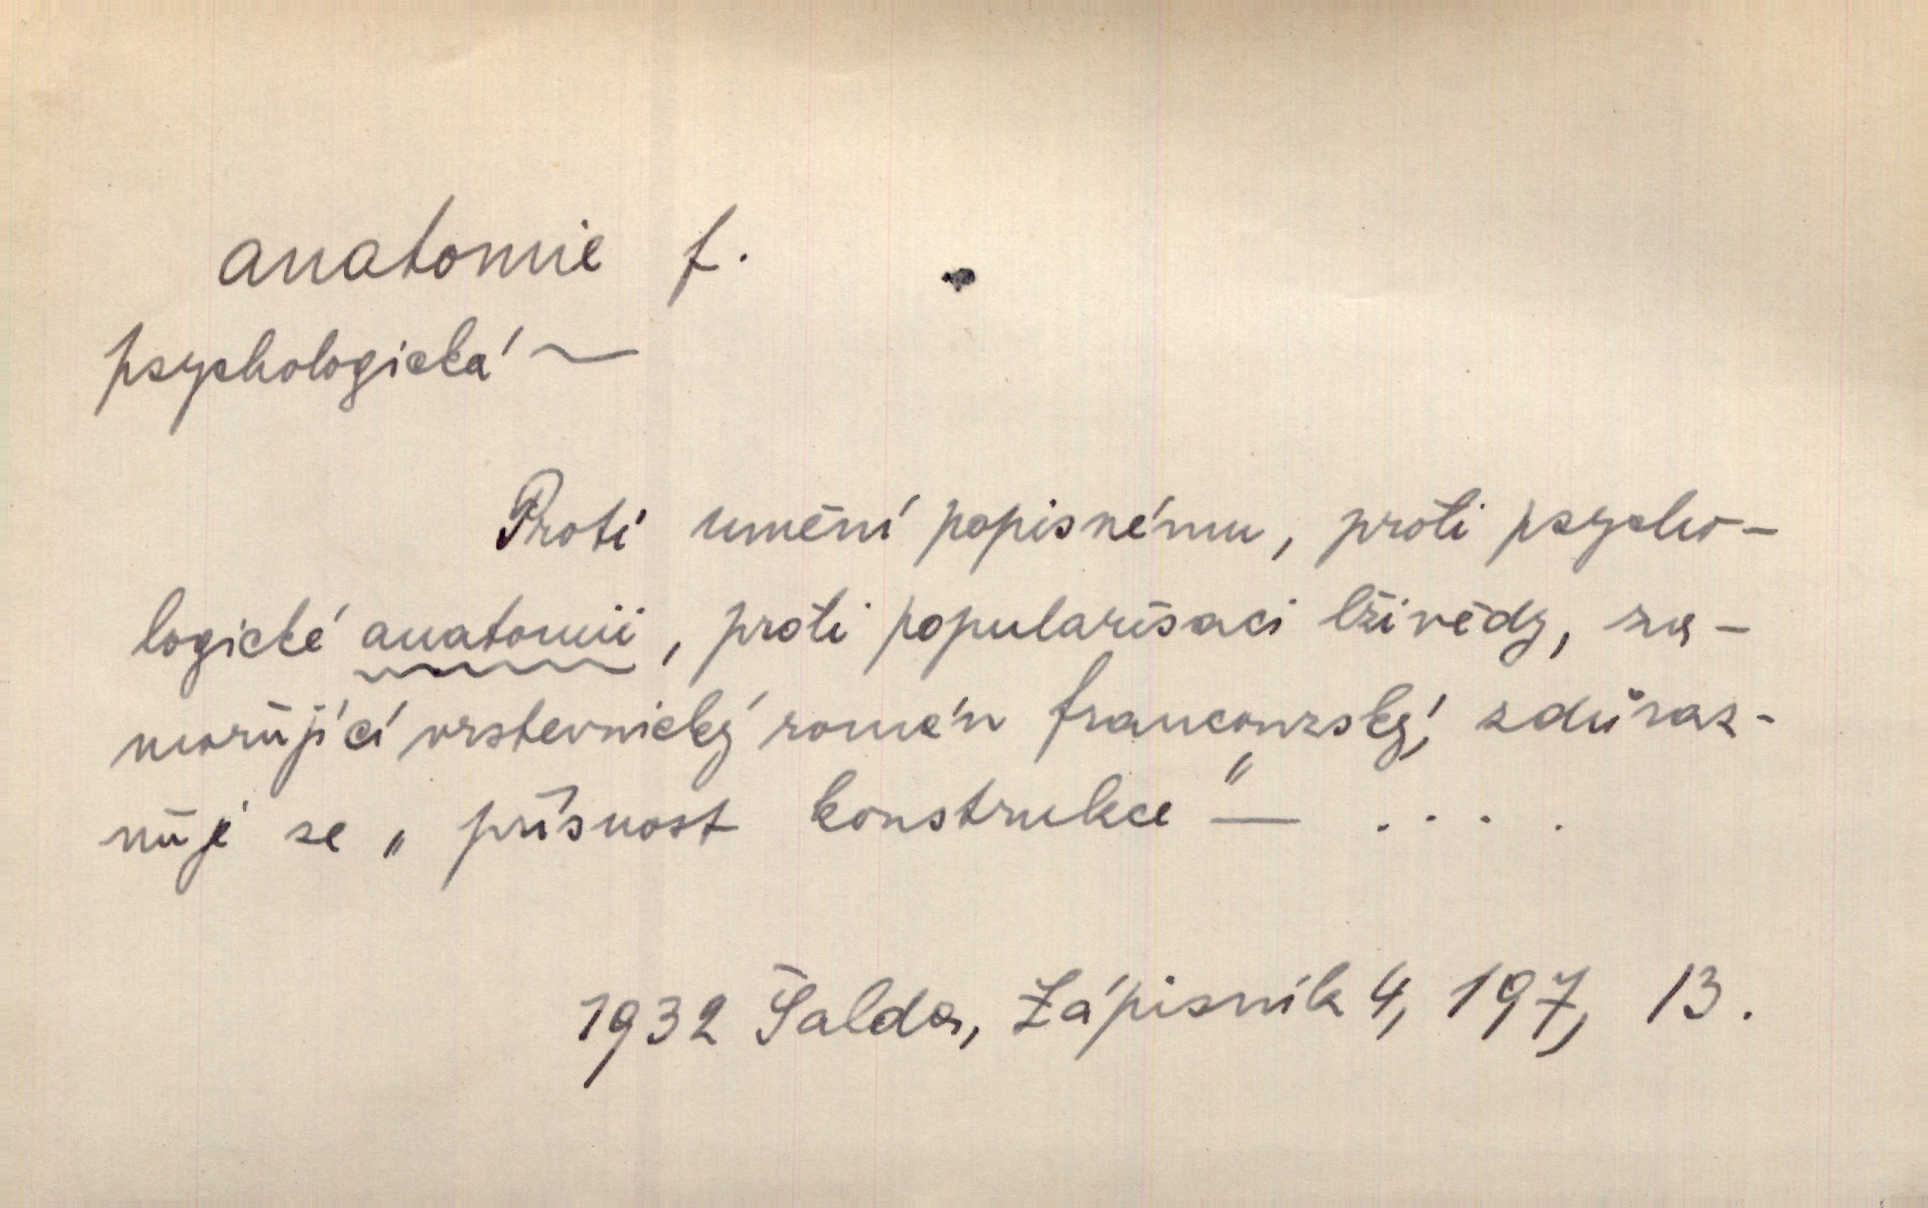 anatomie f.
psychologická ~
Proti umění popisnému, proti psycho-
logické anatomii, proti popularisaci lživědy, za-
mořující vrstevnický román francouzský, zdůraz-
ňuje se „přísnost konstrukce" — ....
1932 Šalda, Zápisník 4, 197, 13.